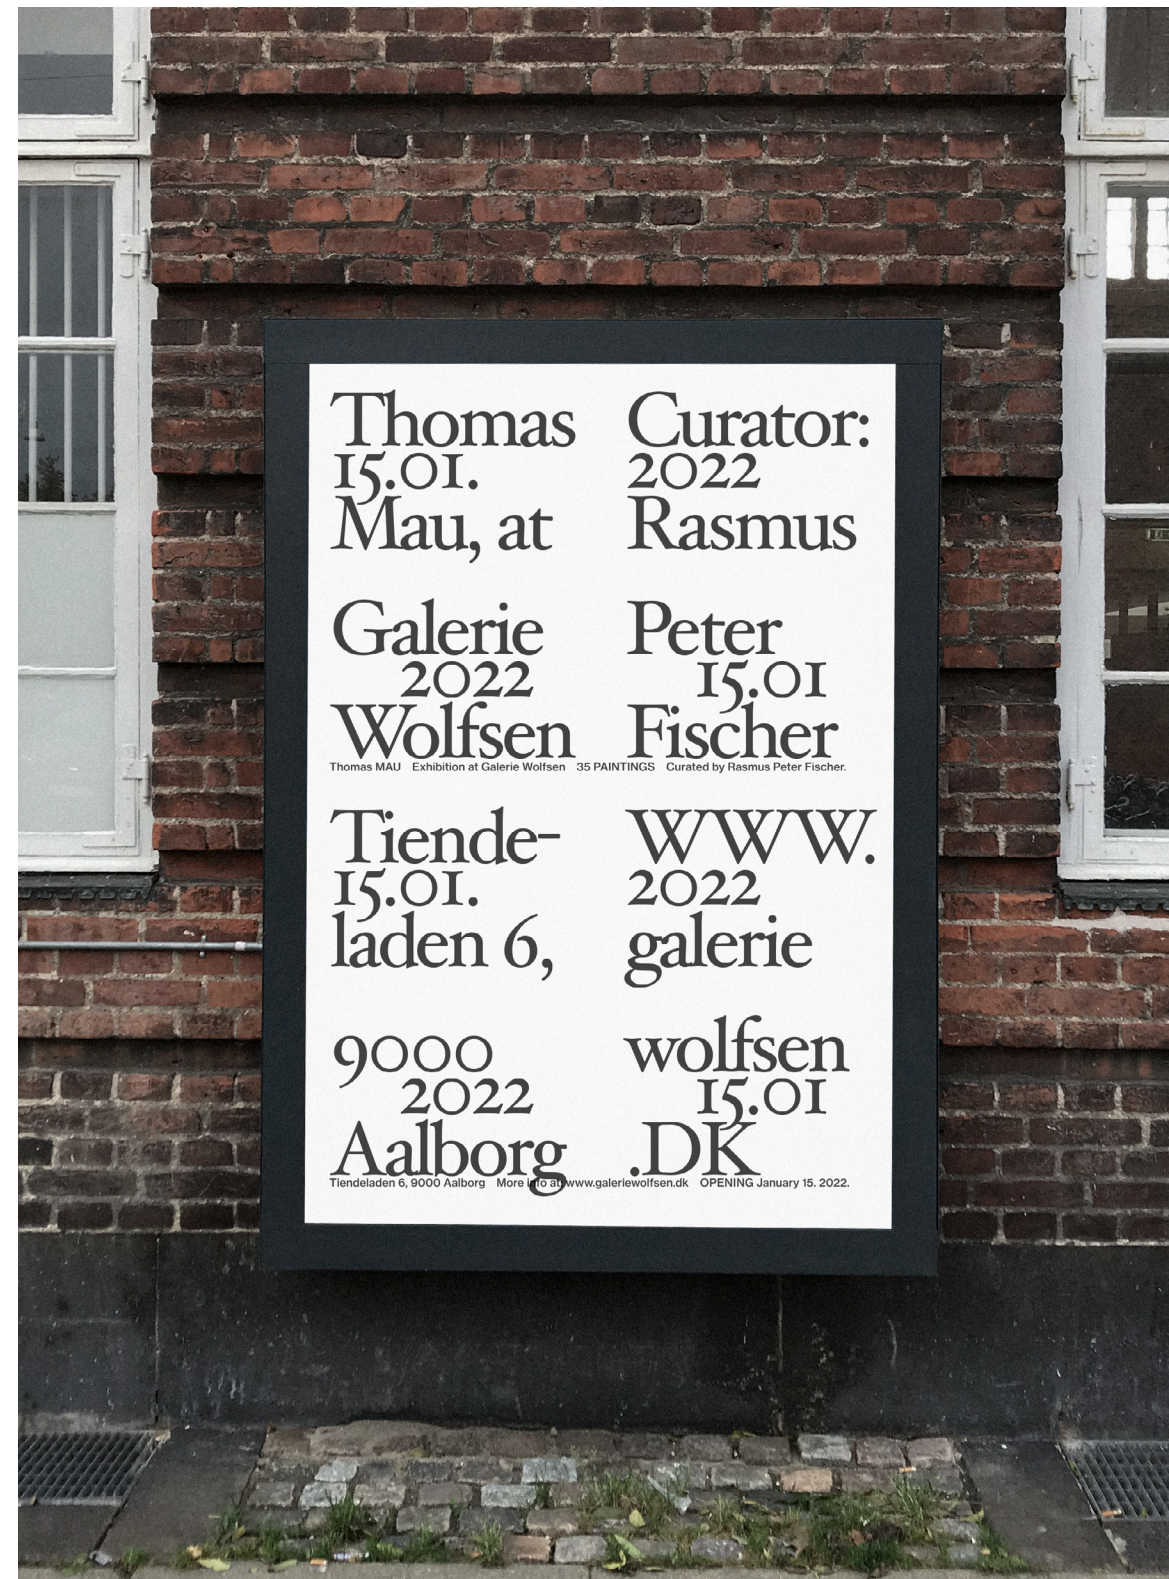 Thomas
15.01.
Mau, at
Galerie
2022
Wolfsen
Curator:
2022
Rasmus
Peter
15.01
Fischer
Thomas MAU Exhibition at Galerie Wolfsen 35 PAINTINGS Curated by Rasmus Peter Fischer.
Tiende-
15.01.
laden 6,
9000
2022
Aalborg
WWW.
2022
galerie
wolfsen
15.01
.DK
Tiendeladen 6, 9000 Aalborg More info at: www.galeriewolfsen.dk OPENING January 15. 2022.